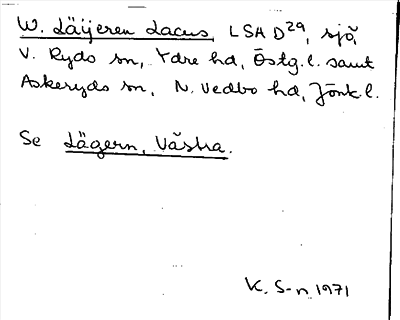 W. Läijeren Lacus, LSA D29, sjö,
V. Ryds sn, Ydre hd, Östg. l. samt
Askeryds sn, N. Vedbo hd, Jönk. l.
Se Lägern, Västra.
K. S-n 1971